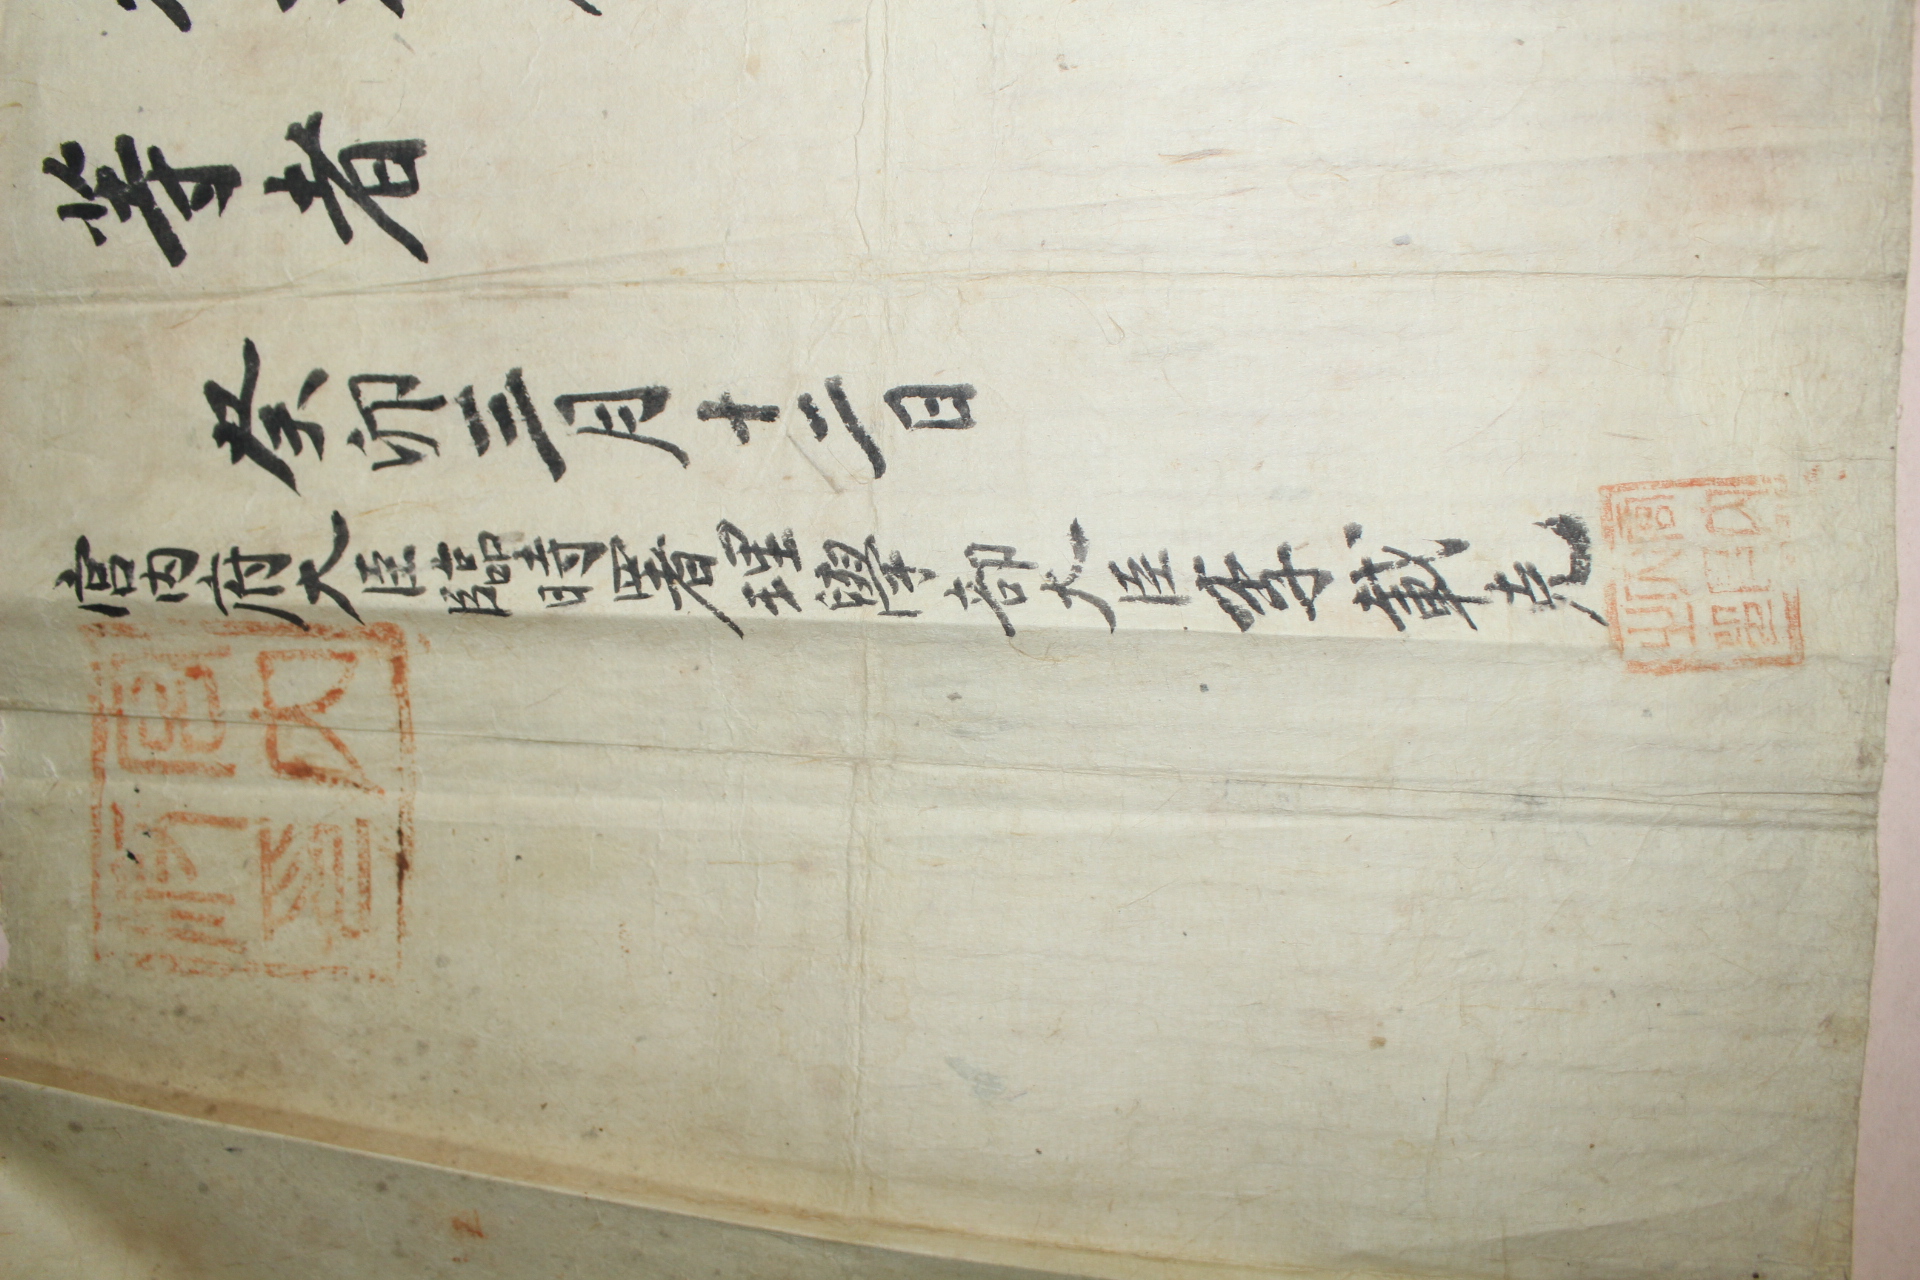 等者
癸卯三月十二日
宮內府大臣臨時署理學部大臣李載克
宮內府印
宮內大臣之印